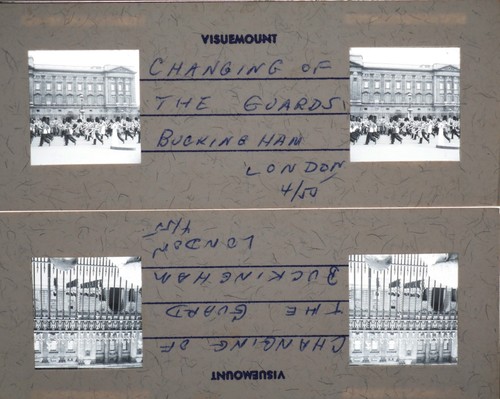 VISUEMOUNT
CHANGING OF
THE GUARDS
BUCKINGHAM
LONDON
4/50
CHANGING OF
THE GUARD
BUCKINGHAM
LONDON
VISUEMOUNT